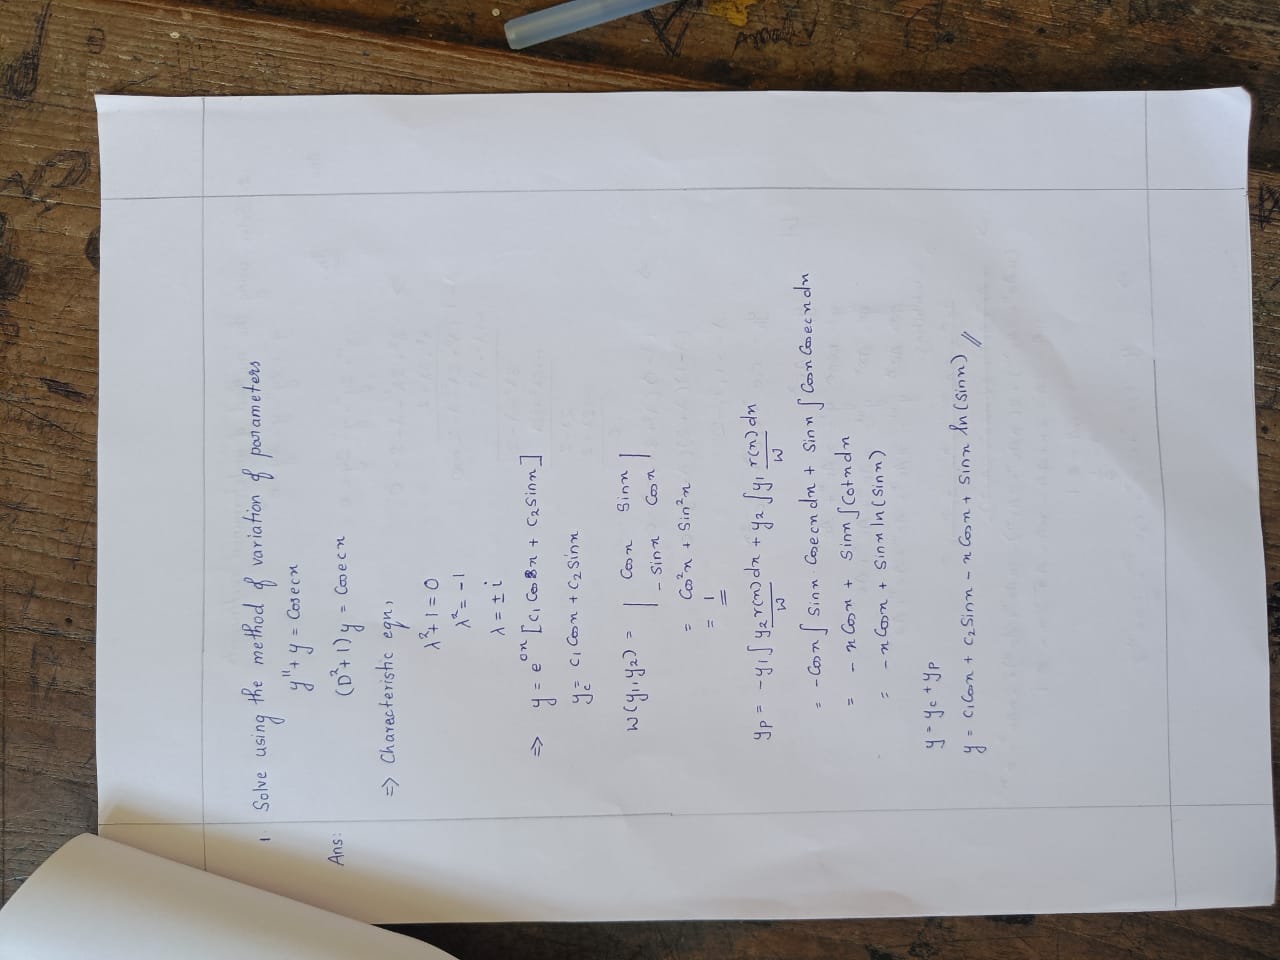 1. Solve using the method of variation of parameters
y'' + y = Cosecx
Ans:
(D² + 1) y = Cosecx
=> Characteristic eqn,
λ² + 1 = 0
λ² = -1
λ = ± i
=> y = e^0x [c₁ Cosx + c₂ Sinx]
y_c = c₁ Cosx + c₂ Sinx
W(y₁, y₂) = | Cosx Sinx |
| - Sinx Cosx |
= Cos²x + Sin²x
= 1
y_p = -y₁ ∫ y₂ r(x) dx / W + y₂ ∫ y₁ r(x) dx / W
= - Cosx ∫ Sinx Cosecx dx + Sinx ∫ Cosx Cosecx dx
= - x Cosx + Sinx ∫ Cotx dx
= - x Cosx + Sinx ln (Sinx)
y = y_c + y_p
y = c₁ Cosx + c₂ Sinx - x Cosx + Sinx ln (Sinx) //